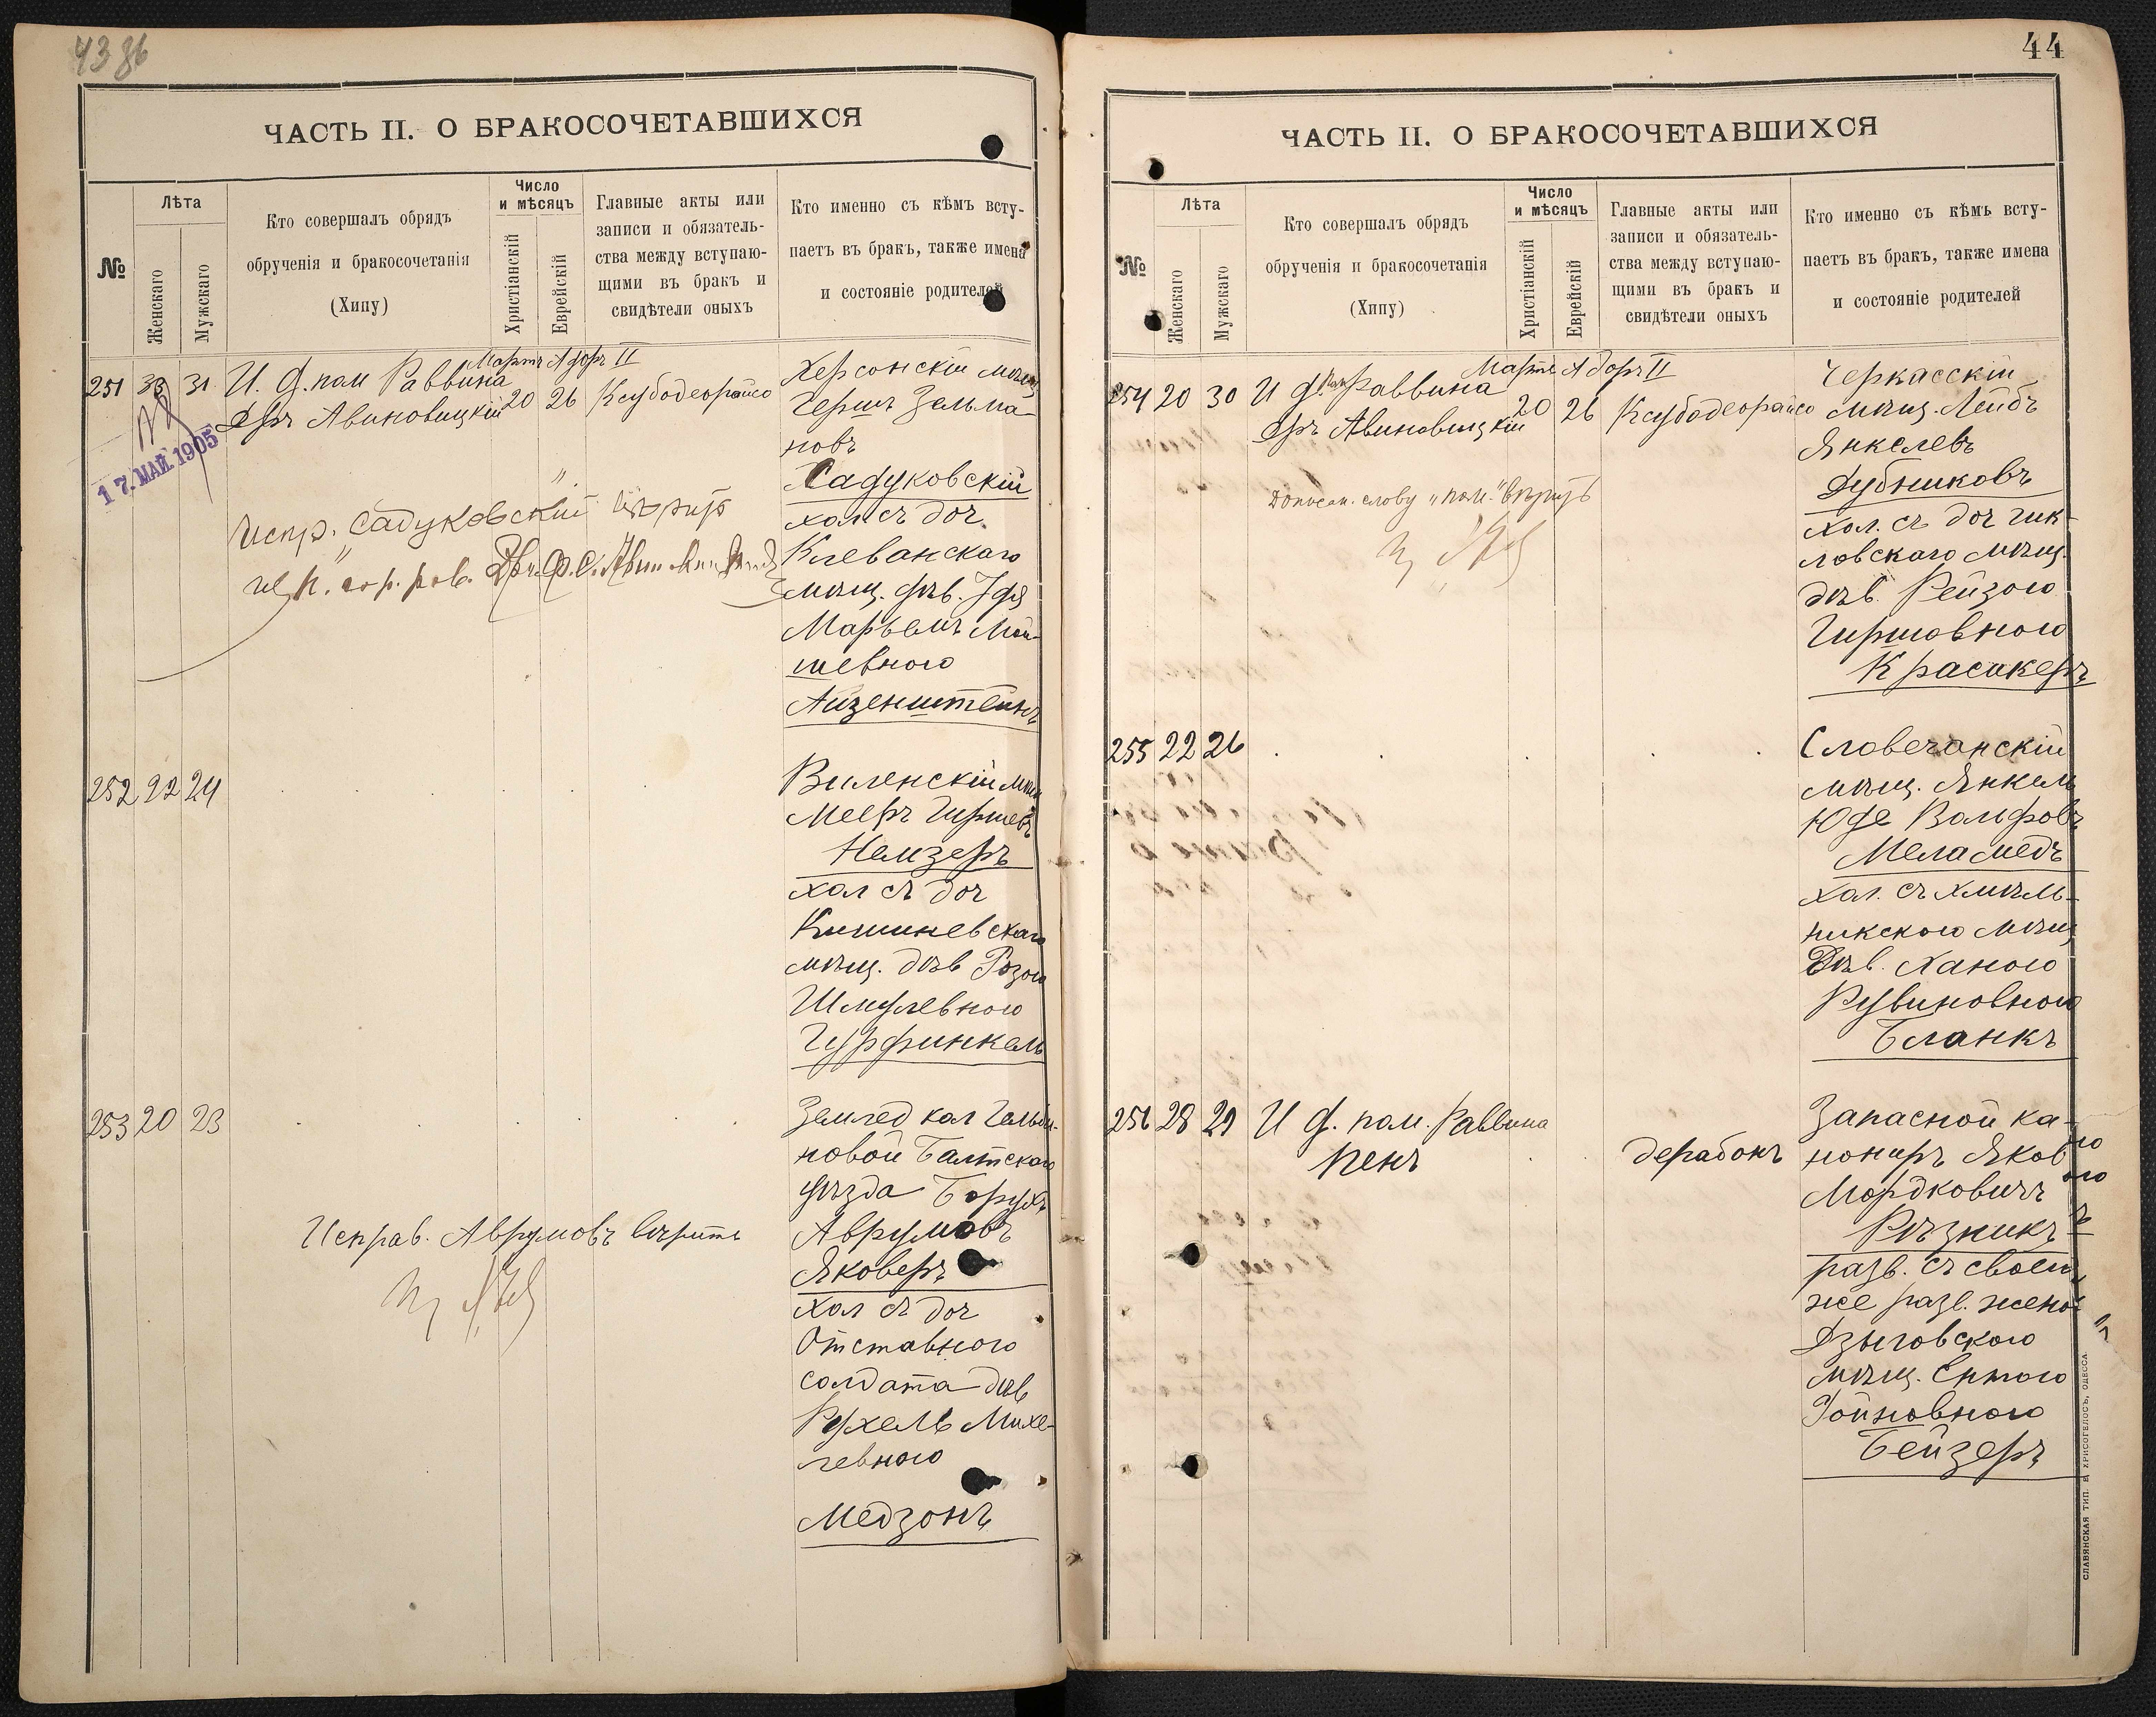 43 86
ЧАСТЬ II. О БРАКОСОЧЕТАВШИХСЯ
№
Лѣта
Женскаго
Мужскаго
Кто совершалъ обрядъ
обрученія и бракосочетанія
(Хипу)
Число
и мѣсяцъ
Христіанскій
Еврейскій
Главные акты или
записи и обязатель-
ства между вступаю-
щими въ бракъ и
свидѣтели оныхъ
Кто именно съ кѣмъ всту-
паетъ въ бракъ, также имена
и состояніе родителей
Мартъ Адоръ II
251 33 31 И. д. пом Раввина
Дръ Авиновицкій 20 26 Ксубодеорайсо
17. МАЙ. 1905
Херсонскій мѣщ
Гершъ Зельма-
новъ
Садуковскій
хол съ доч.
Клеванскаго
мѣщ. дѣв.
Марьемъ Мой-
шевною
Айзенштейнъ
Испр. Садуковскій вѣрить
гор. рав.
252 22 24
Виленскій мѣщ
Мееръ Гиршевъ
Немзеръ
хол съ доч
Кишиневскаго
мѣщ. дѣв Розою
Шмулевною
Гурфинкель
253 20 23
Землед кол
новой Балтскаго
уѣзда Борухъ
Аврумовъ
Яковеръ
хол съ доч
Отставного
солдата дѣв
Рухель Михе-
левною
Медзонъ
Исправ. Аврумовъ вѣрить
44
ЧАСТЬ II. О БРАКОСОЧЕТАВШИХСЯ
№
Лѣта
Женскаго
Мужскаго
Кто совершалъ обрядъ
обрученія и бракосочетанія
(Хипу)
Число
и мѣсяцъ
Христіанскій
Еврейскій
Главные акты или
записи и обязатель-
ства между вступаю-
щими въ бракъ и
свидѣтели оныхъ
Кто именно съ кѣмъ всту-
паетъ въ бракъ, также имена
и состояніе родителей
Мартъ Адоръ II
254 20 30 И д. пом Раввина
Дръ Авиновицкій 20 26 Ксубодеорайсо
Черкасскій
мѣщ. Лейбъ
Янкелевъ
Дубниковъ
хол. съ доч Шк-
ловскаго мѣщ.
дѣв. Рейзою
Гиршовною
Красикеръ
Дописан. слову „пом." вѣрить
255 22 26
Словечанскій
мѣщ. Янкель
Юде Вольфовъ
Меламедъ
хол. съ Хмѣль-
никскою мѣщ
Дѣв. Ханою
Рувиновною
Бланкъ
256 28 29 И д. пом. Раввина
Пенъ
дерабонъ
Запасной ка-
нониръ Яковъ
Мордковичъ
Рѣзникъ
разв. съ своею
же разв. женой
Дзыговскою
мѣщ. Ентою
Гойновною
Бейзеръ
СЛАВЯНСКАЯ ТИП. Е. ХРИСОГЕЛОСЪ, ОДЕССА